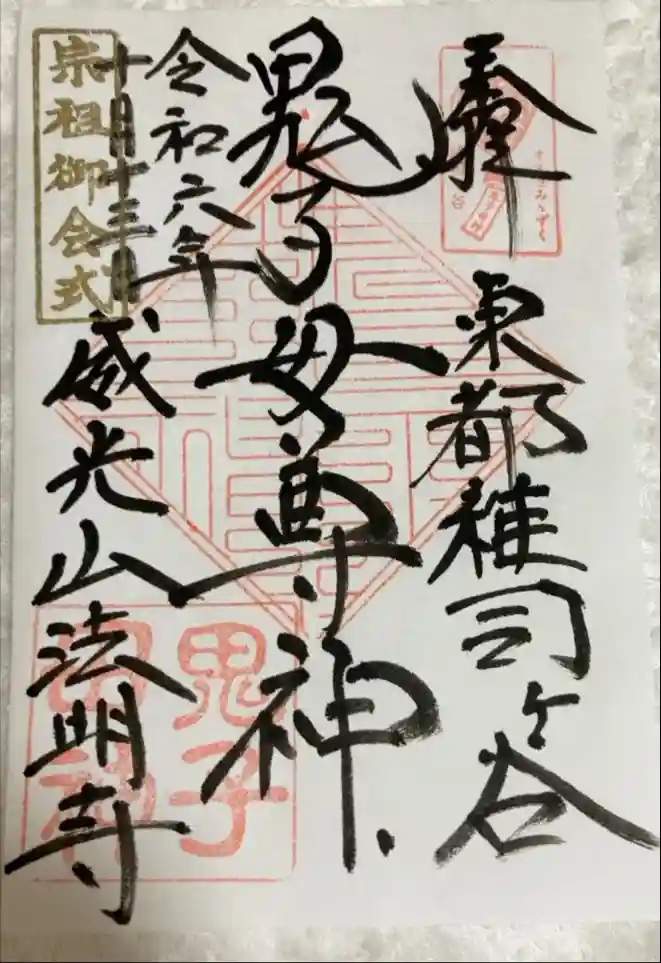 奉拝
東都雑司ヶ谷
すすきみゝずく
鬼子母尊神
令和六年
十月十三日
宗祖御会式
威光山法明寺
鬼子
母神